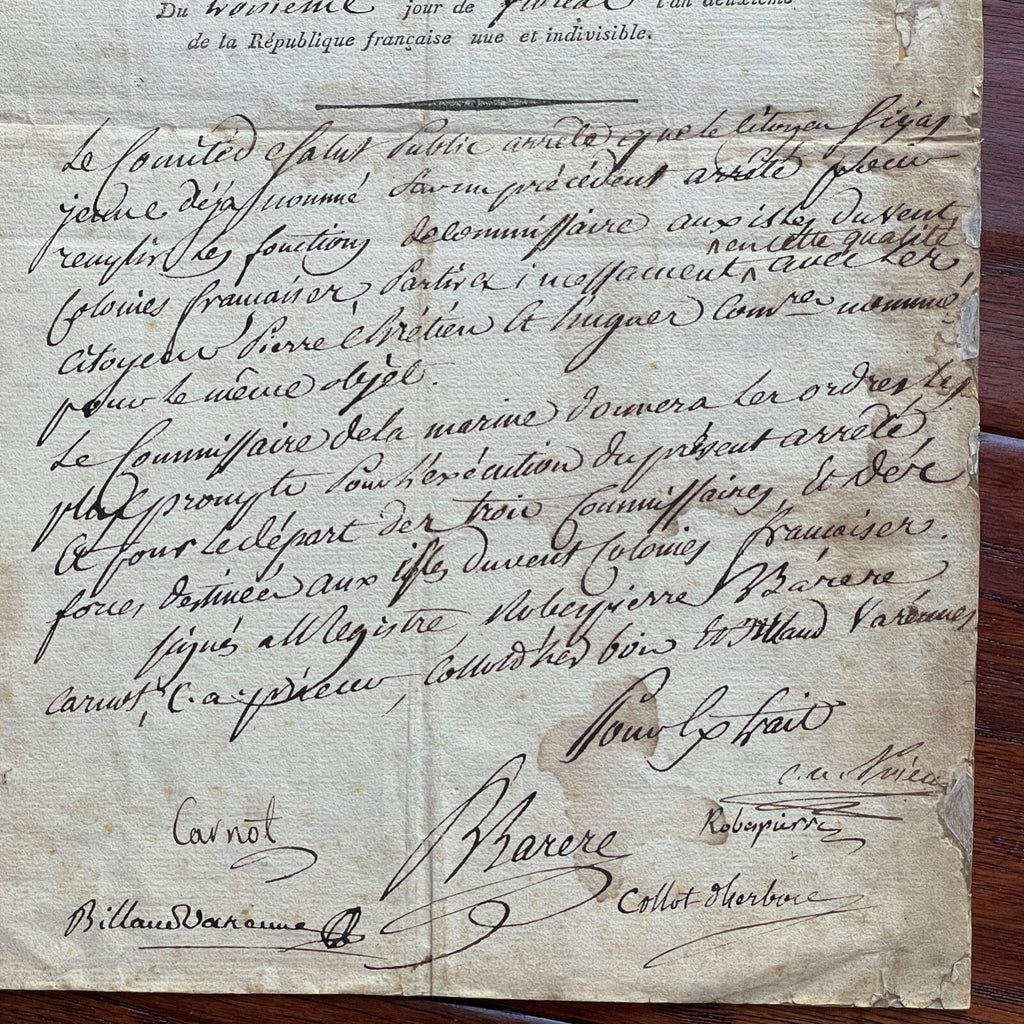 Du troisième jour de floréal l'an deuxième
de la République française une et indivisible.
Le Comité de Salut Public arrête que le Citoyen Sijas
jeune déja nommé par un précédent arrêté pour
remplir les fonctions de commissaire aux isles du vent
Colonies françaises, partira incessament, en cette qualité avec les
citoyens Pierre Chrétien et hugues Com.res nommés
pour le même objet.
Le Commissaire de la marine donnera les ordres les
plus prompts pour l'exécution du présent arrêté,
et pour le départ des trois Commissaires, et des
forces destinées aux isles du vent Colonies françaises.
signés au Registre, Robespierre, Barere
Carnot, C. a. prieur, Collot d'herbois, Billaud Varennes
Pour Extrait
C. a. Prieur
Carnot
Barere
Robespierre
Billaud Varenne
Collot d'herbois